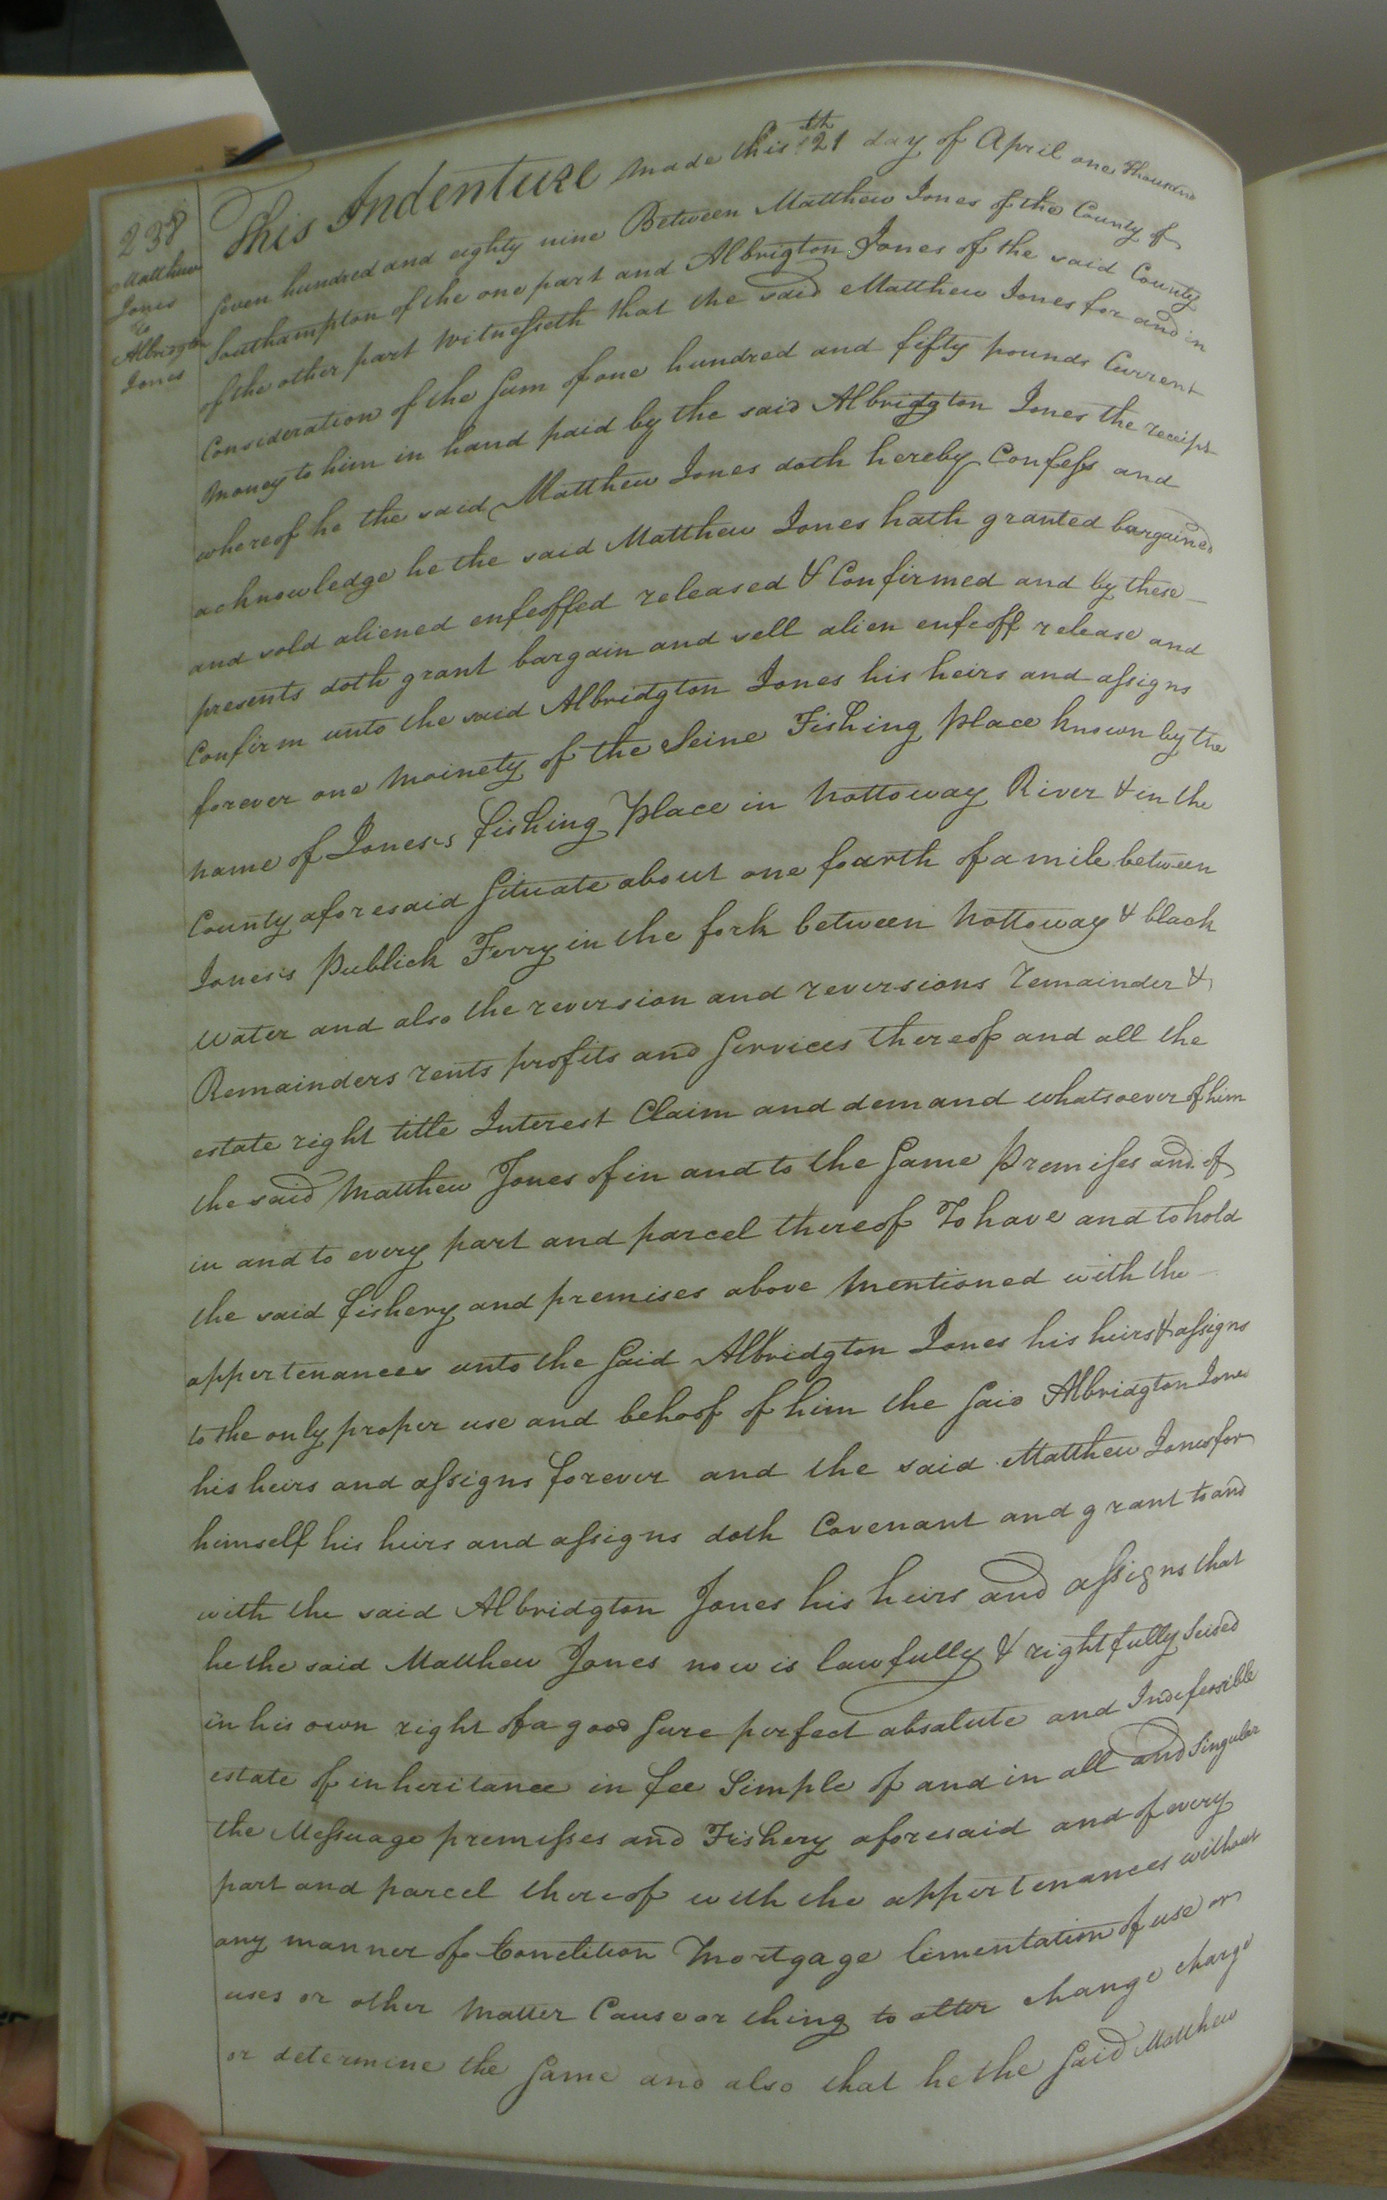 238
Matthew
Jones
to
Albrigton
Jones
This Indenture made this 21th day of April one thousand
Seven hundred and eighty nine Between Matthew Jones of the County of
Southampton of the one part and Albrigton Jones of the said County
of the other part Witnesseth that the said Matthew Jones for and in
Consideration of the Sum of one hundred and fifty pounds Current
Money to him in hand paid by the said Albridgton Jones the receipt
whereof he the said Matthew Jones doth hereby Confess and
acknowledge he the said Matthew Jones hath granted bargained
and sold aliened enfeoffed released & Confirmed and by these
presents doth grant bargain and sell alien enfeoff release and
Confirm unto the said Albridgton Jones his heirs and assigns
forever one Moinety of the Seine Fishing place known by the
name of Joneses fishing place in Nottoway River & in the
County aforesaid Situate about one fourth of a mile between
Joneses Publick Ferry in the fork between Nottoway & black
water and also the reversion and reversions remainder &
Remainders rents profits and Services thereof and all the
estate right title Interest Claim and demand whatsoever of him
the said Matthew Jones of in and to the Same Premises and of
in and to every part and parcel thereof To have and to hold
the said fishery and premises above mentioned with the
appertenances unto the Said Albridgton Jones his heirs & assigns
to the only proper use and behoof of him the Said Albridgton Jones
his heirs and assigns forever and the said Matthew Jones for
himself his heirs and assigns doth Covenant and grant to and
with the said Albridgton Jones his heirs and assigns that
he the said Matthew Jones now is lawfully & rightfully Seised
in his own right of a good Sure perfect absalute and Indefeasible
estate of inheritance in fee Simple of and in all and Singular
the Messuage premisses and Fishery aforesaid and of every
part and parcel thereof with the appertenances without
any manner of Condition Mortgage limentation of use or
uses or other Matter Cause or thing to alter change charge
or determine the Same and also that he the Said Matthew